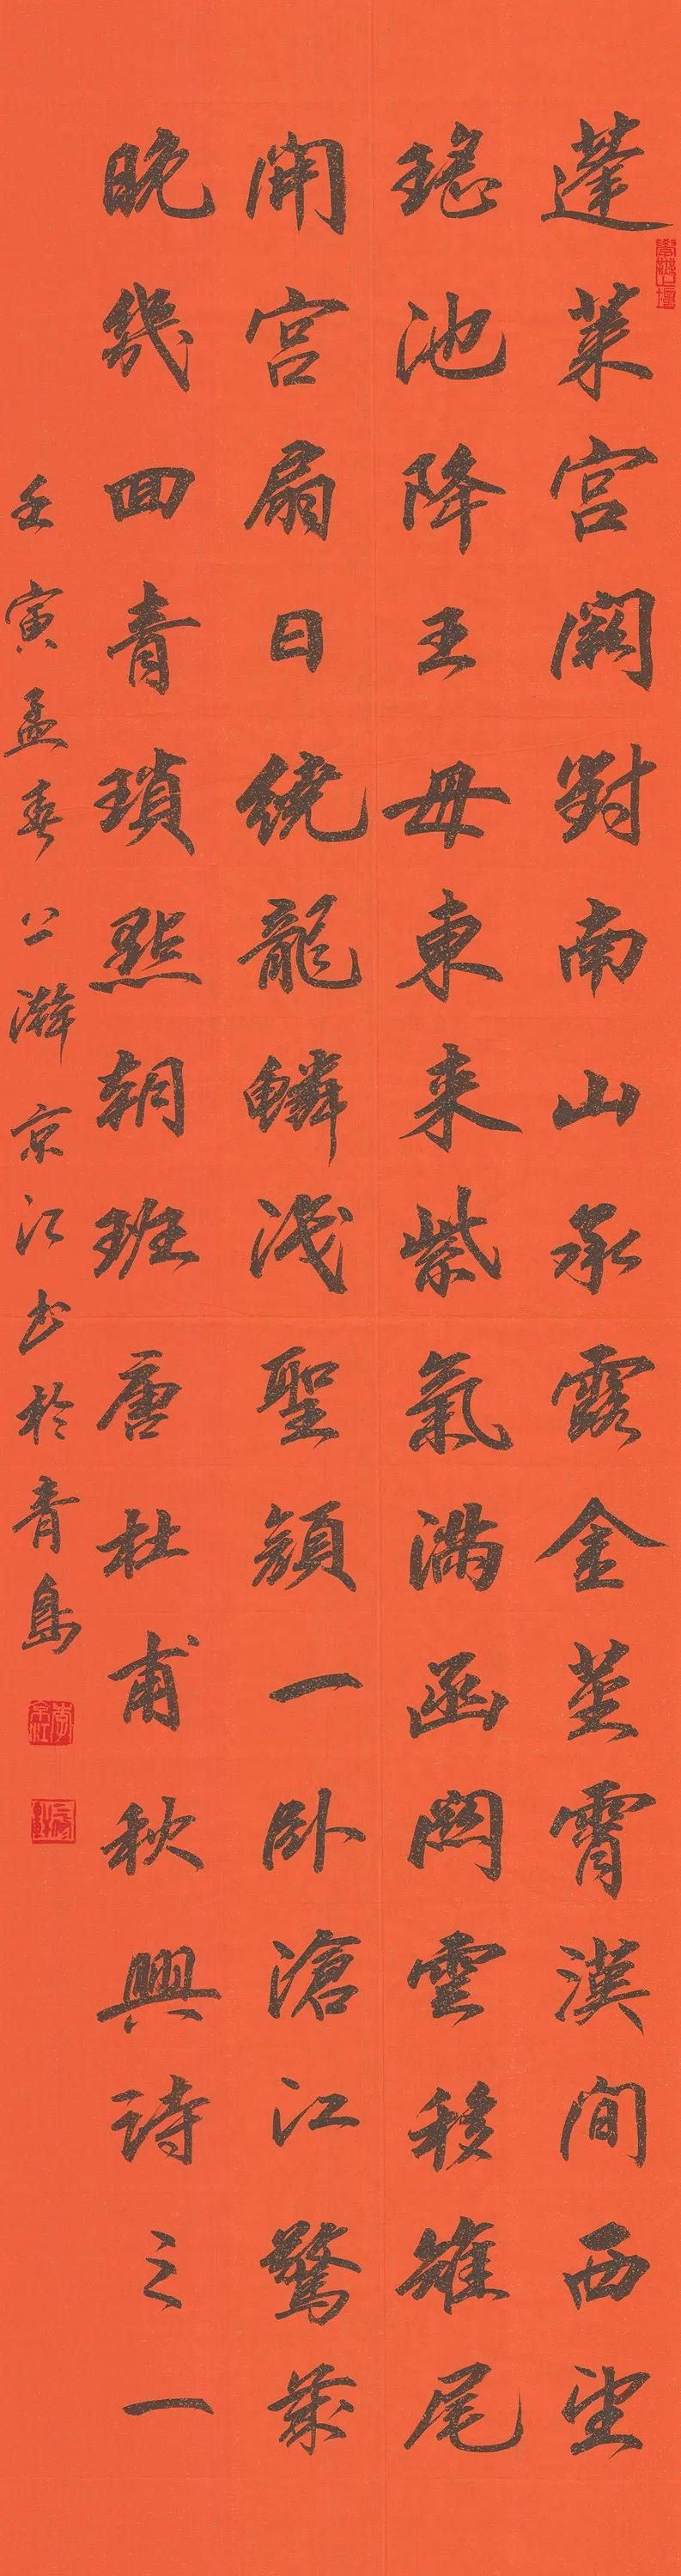 蓬莱宫闕對南山承露金莖霄漢間西望
瑶池降王母東来紫氣滿函關雲移雉尾
開宫扇日繞龍鱗識聖顔一卧滄江驚歲
晚幾回青瑣點朝班唐杜甫秋興詩之一
壬寅孟春上澣京江书於青島